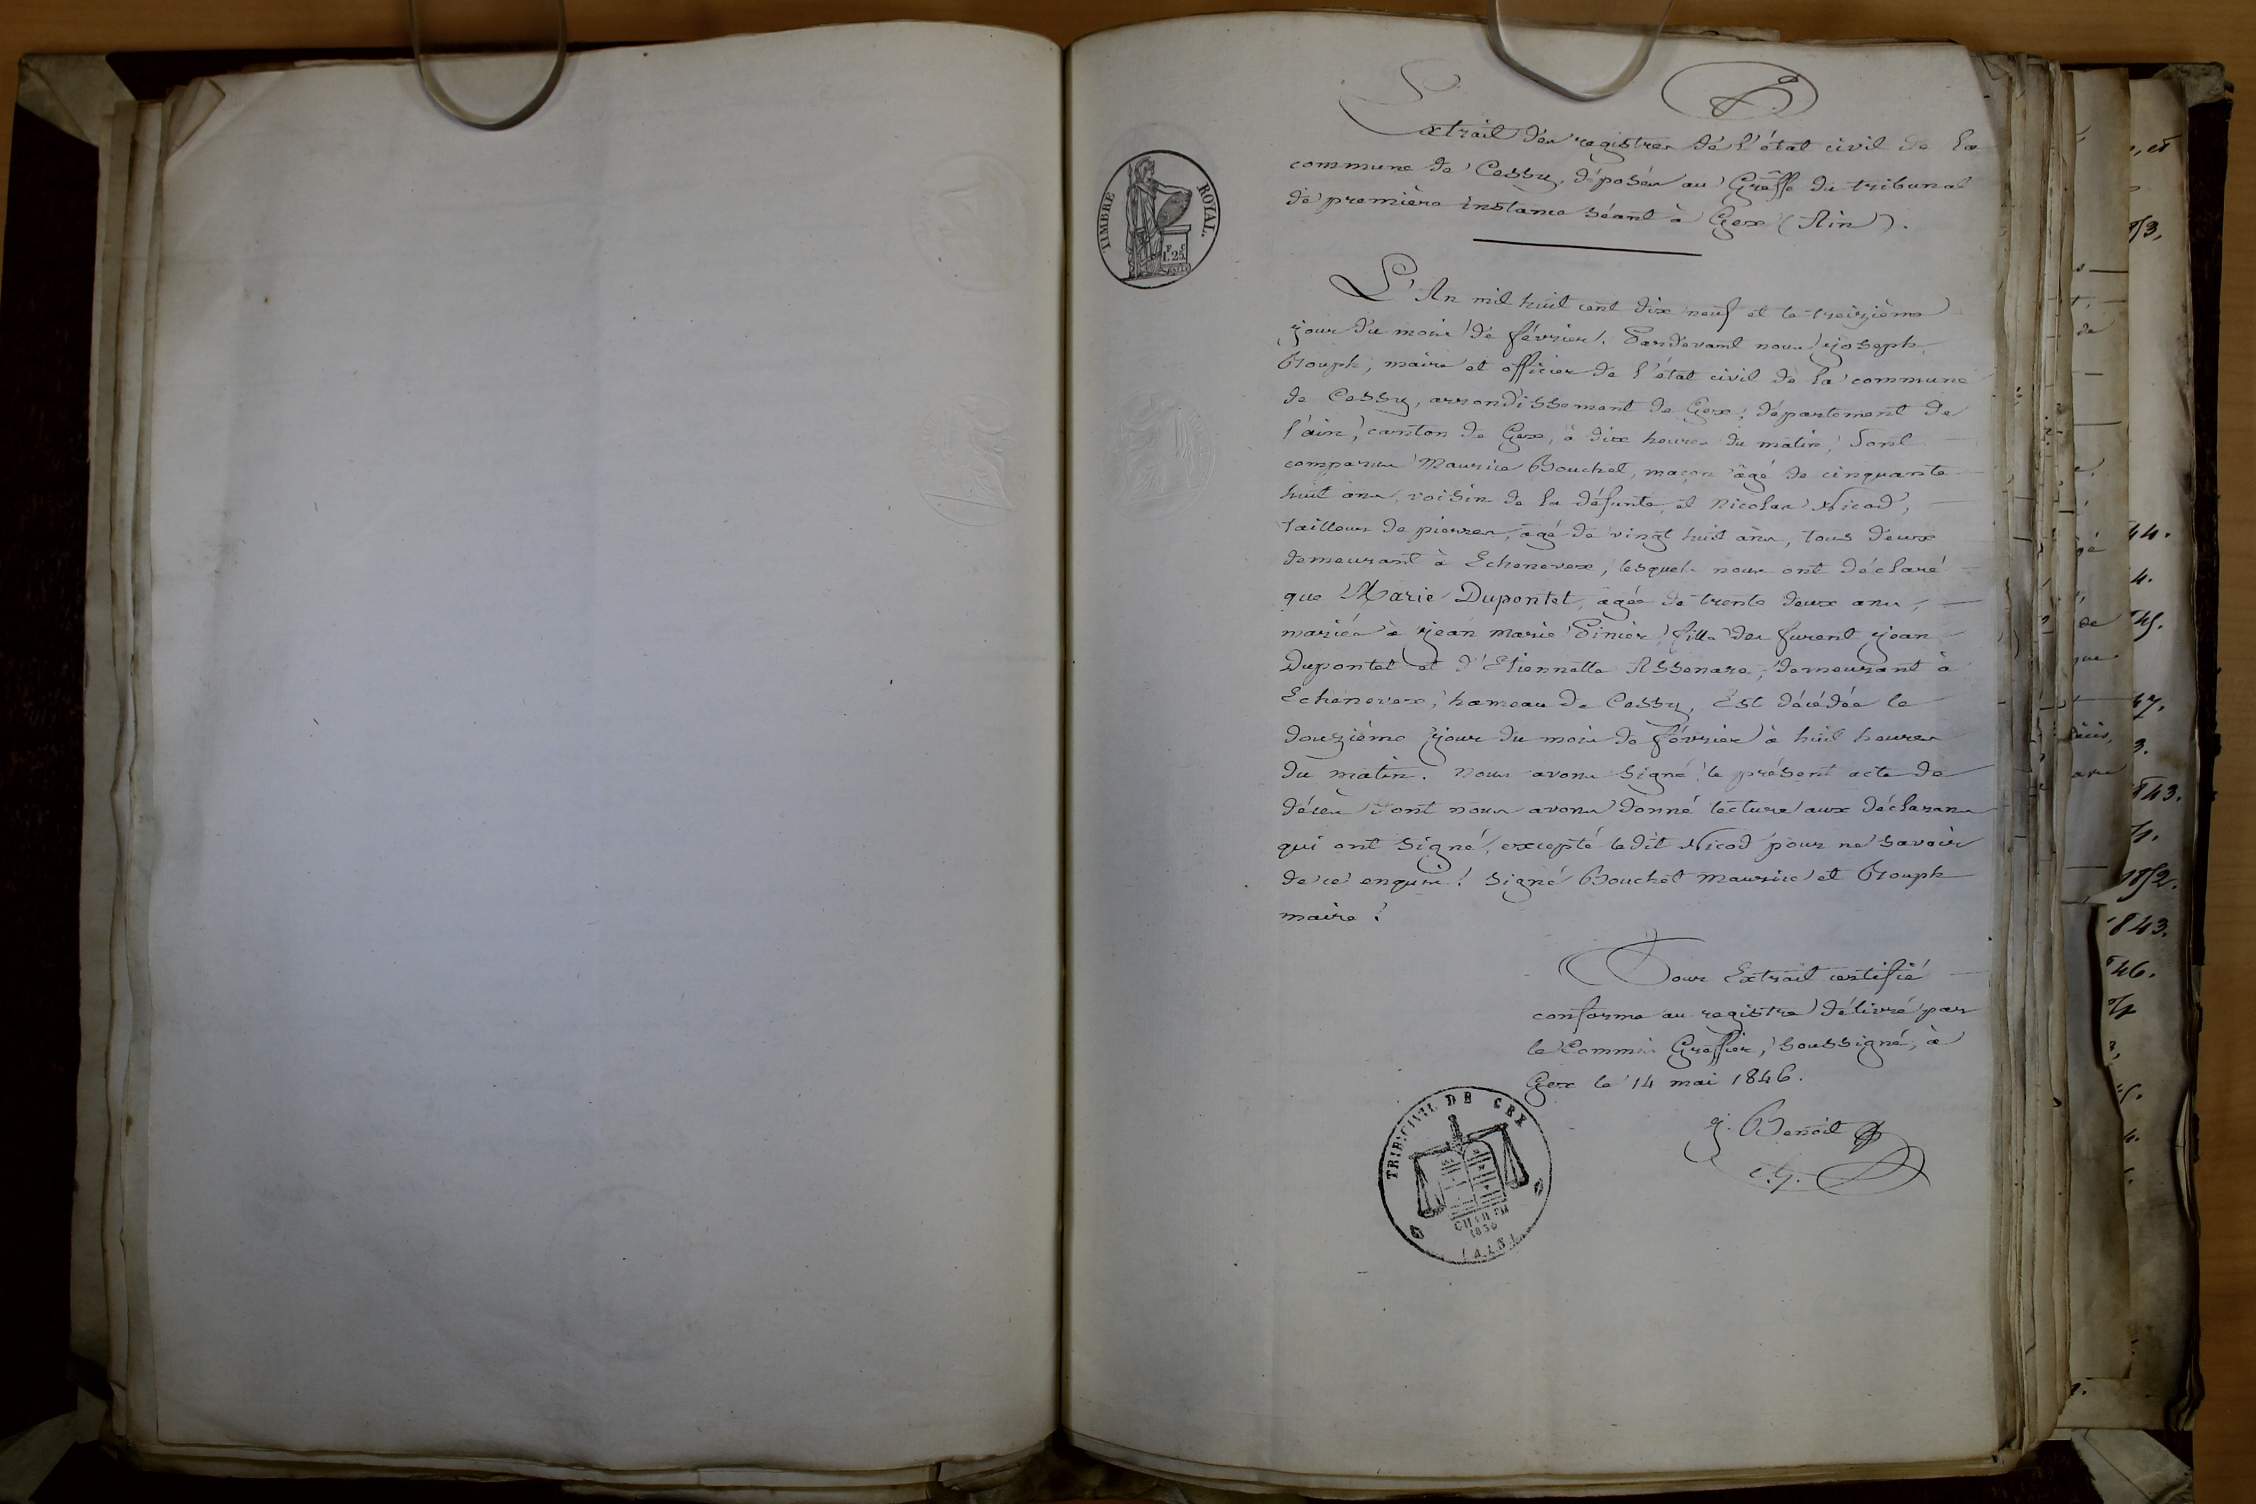 TIMBRE ROYAL
1.25
Extrait des registres de l'état civil de la
commune de Cessy, déposés au Greffe du tribunal
de première instance séant à Gex (Ain).
L'An mil huit cent dix neuf et le treizième
jour du mois de février. Pardevant nous joseph
Grouph, maire et officier de l'état civil de la commune
de Cessy, arrondissement de Gex, département de
l'ain, canton de Gex, à dix heures du matin, sont
comparus Maurice Bouchet, maçon âgé de cinquante
huit ans, voisin de la défunte, et Nicolas Nicod,
tailleur de pierres, âgé de vingt huit ans, tous deux
demeurant à Echenevex, lesquels nous ont déclaré
que Marie Dupontet, agée de trente deux ans,
mariée à jean marie Pinier, fille des furent jean
Dupontet et d'Etiennette Assenare, demeurant à
Echenevex, hameau de Cessy, Est décédée le
douzième jour du mois de février à huit heures
du matin. Nous avons signé le présent acte de
décès dont nous avons donné lecture aux déclarans
qui ont signé, excepté ledit Nicod pour ne savoir
de ce enquis. Signé Bouchet Maurice et Grouph
maire.
Pour Extrait certifié
conforme au registre délivré par
le Commis Greffier, soussigné, à
Gex le 14 mai 1846.
j. Benoit
c. g.
TRIB. CIVIL DE GEX
CHARTE
1830
(AIN)